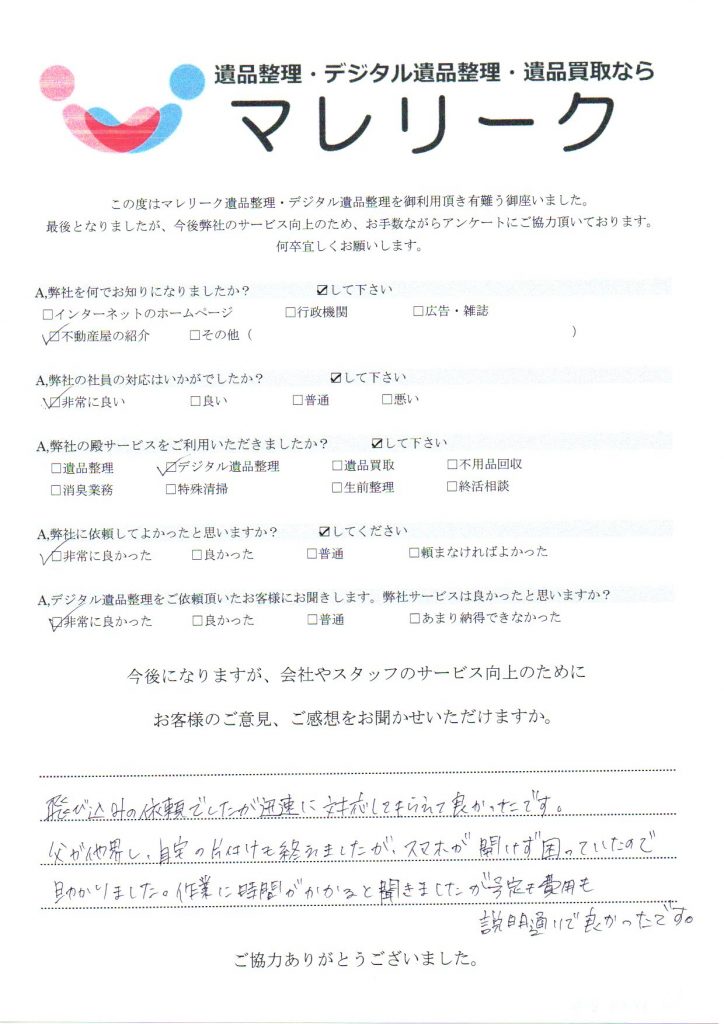 遺品整理・デジタル遺品整理・遺品買取なら
マレリーク
この度はマレリーク遺品整理・デジタル遺品整理を御利用頂き有難う御座いました。
最後となりましたが、今後弊社のサービス向上のため、お手数ながらアンケートにご協力頂いております。
何卒宜しくお願いします。
A,弊社を何でお知りになりましたか？ ☑して下さい
□インターネットのホームページ □行政機関 □広告・雑誌
☑不動産屋の紹介 □その他（ ）
A,弊社の社員の対応はいかがでしたか？ ☑して下さい
☑非常に良い □良い □普通 □悪い
A,弊社の殿サービスをご利用いただきましたか？ ☑して下さい
□遺品整理 ☑デジタル遺品整理 □遺品買取 □不用品回収
□消臭業務 □特殊清掃 □生前整理 □終活相談
A,弊社に依頼してよかったと思いますか？ ☑してください
☑非常に良かった □良かった □普通 □頼まなければよかった
A,デジタル遺品整理をご依頼頂いたお客様にお聞きします。弊社サービスは良かったと思いますか？
☑非常に良かった □良かった □普通 □あまり納得できなかった
今後になりますが、会社やスタッフのサービス向上のために
お客様のご意見、ご感想をお聞かせいただけますか。
飛び込みの依頼でしたが迅速に対応してもらえて良かったです。
父が他界し、自宅の片付けも終えましたが、スマホが開けず困っていたので
助かりました。作業に時間がかかると聞きましたが予定も費用も
説明通りで良かったです。
ご協力ありがとうございました。